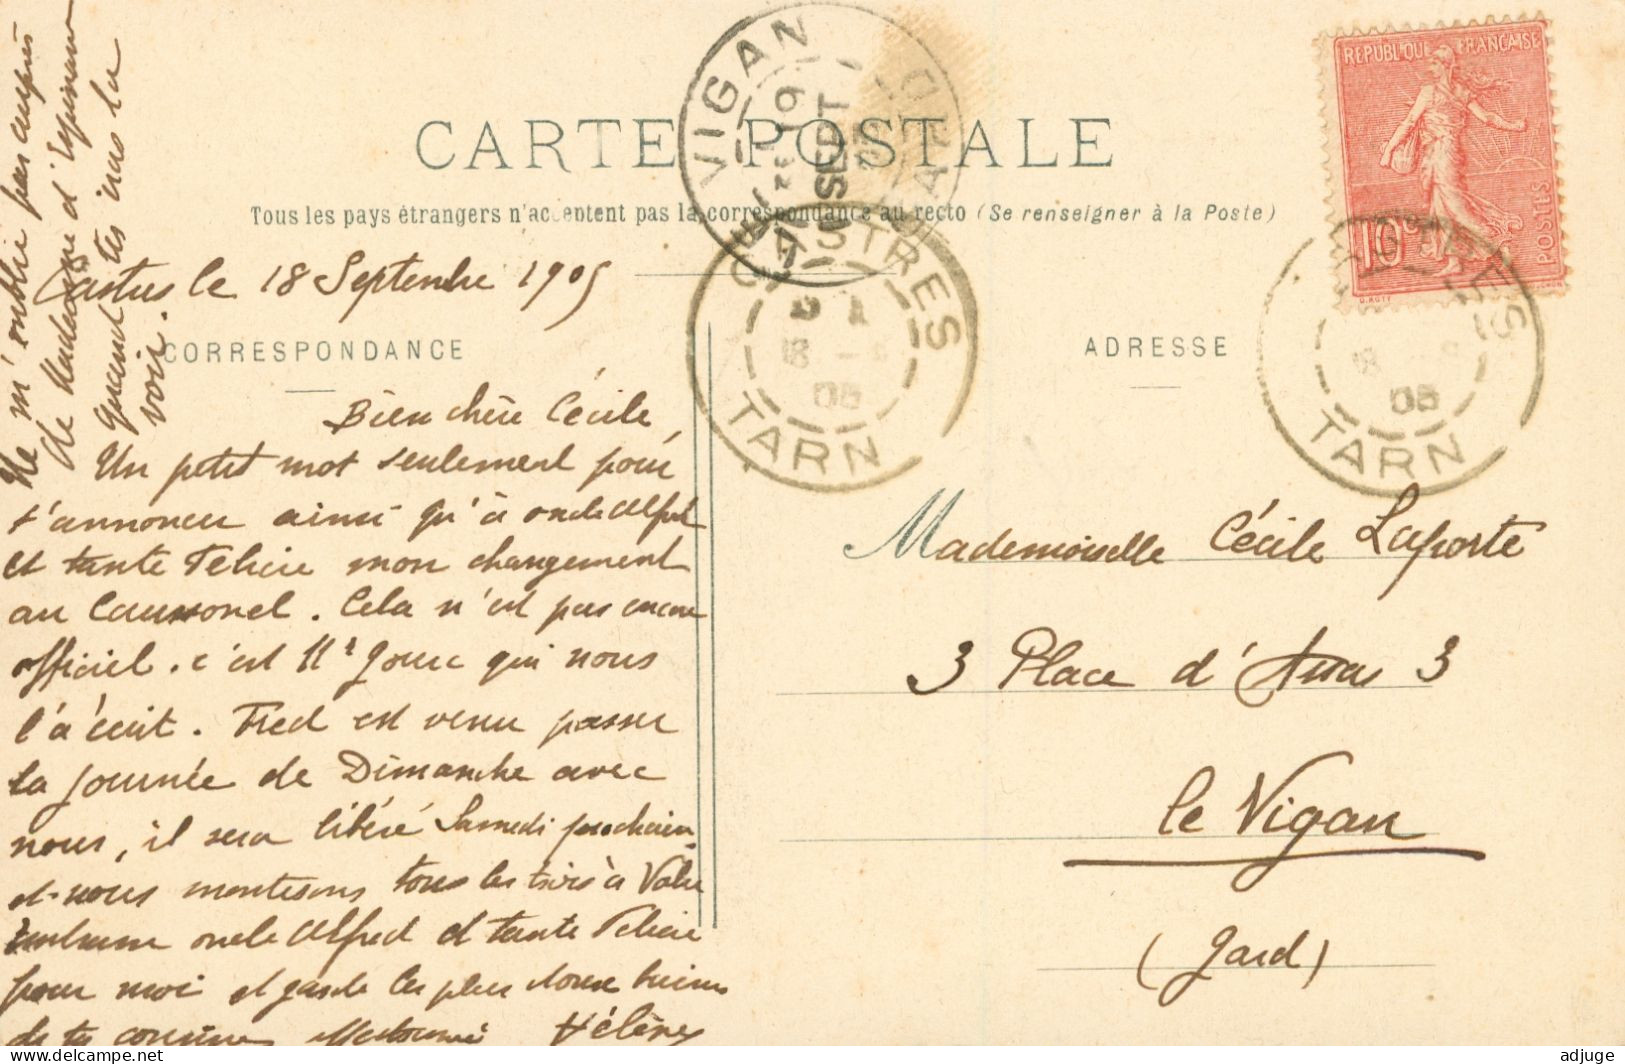 CARTE POSTALE
Tous les pays étrangers n'acceptent pas la correspondance au recto (Se renseigner à la Poste)
REPUBLIQUE FRANÇAISE
10c
POSTES
O. ROTY
VIGAN
19
SEPT
05
GARD
CASTRES
18
05
TARN
TARN
05
Castres le 18 Septembre 1905
CORRESPONDANCE
ADRESSE
Bien chère Cécile
Un petit mot seulement pour
t'annoncer ainsi qu'à oncle Alfred
et tante Félicie mon changement
au . Cela n'est pas encore
officiel. c'est Mr Gourc qui nous
l'a écrit. Fred est venu passer
la journée de Dimanche avec
nous, il sera libéré Samedi prochain
et nous monterons tous les trois à
embrasse oncle Alfred et tante Félicie
pour moi et garde les plus doux baisers
de ta cousine affectionnée Hélène
Ne m'oublie pas auprès
de Madame d'Espinassous
quand tu iras la
voir.
Mademoiselle Cécile Laporte
3 Place d'Assas 3
le Vigan
(Gard)
adjuge